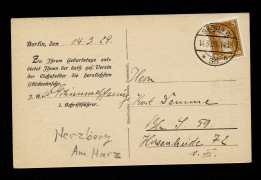 Berlin, den 14.3.29.
Zu Ihrem Geburtstage ent-
bietet Ihnen der kath. ges. Verein
der Eichsfelder die herzlichsten
Glückwünsche.
I. A.
1. Schriftführer.
Herzberg
Am Harz
Herrn
Karl
Bln S 59
Hasenheide 72
BERLIN